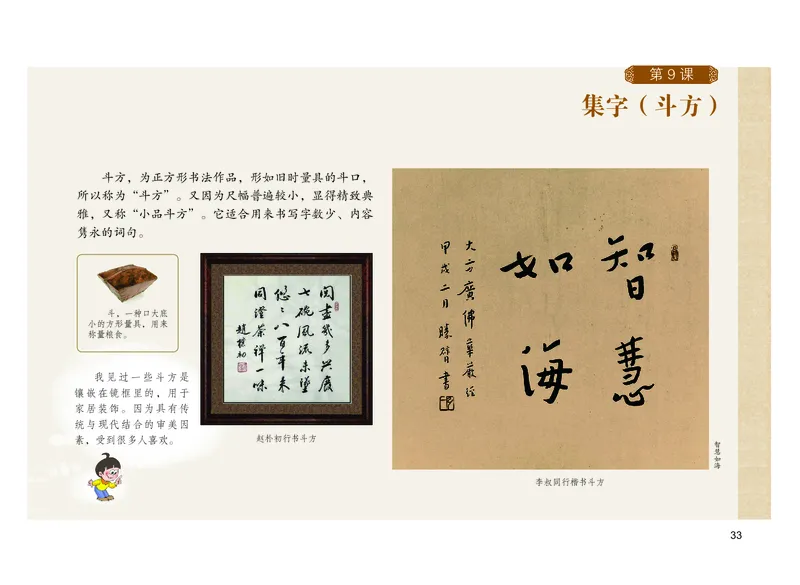 第9课
集字（斗方）
斗方，为正方形书法作品，形如旧时量具的斗口，
所以称为“斗方”。又因为尺幅普遍较小，显得精致典
雅，又称“小品斗方”。它适合用来书写字数少、内容
隽永的词句。
斗，一种口大底
小的方形量具，用来
称量粮食。
我见过一些斗方是
镶嵌在镜框里的，用于
家居装饰。因为具有传
统与现代结合的审美因
素，受到很多人喜欢。
阅尽几多兴废
七碗风流未坠
悠悠八百年来
同澄茶禅一味
赵朴初
赵朴初行书斗方
智慧
如海
大方廣佛華嚴經
甲戌二月勝臂書
智慧如海
李叔同行楷书斗方
33